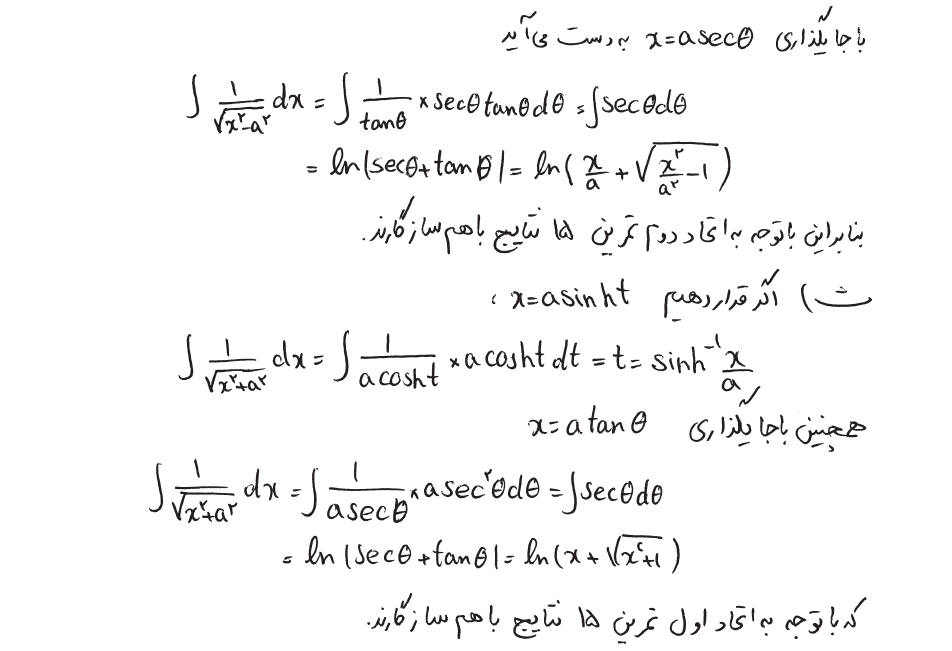 با جایگذاری x = a secθ به دست می‌آید
∫ 1/√(x²-a²) dx = ∫ 1/tanθ × secθ tanθ dθ = ∫ secθ dθ
= ln|secθ + tanθ| = ln( x/a + √(x²/a² - 1) )
بنابراین با توجه به اتحاد دوم تمرین ۱۵ نتایج با هم سازگارند.
ث) اگر قرار دهیم x = a sinh t ،
∫ 1/√(x²+a²) dx = ∫ 1/(a cosh t) × a cosh t dt = t = sinh⁻¹ x/a
همچنین با جایگذاری x = a tanθ
∫ 1/√(x²+a²) dx = ∫ 1/(a secθ) × a sec²θ dθ = ∫ secθ dθ
= ln|secθ + tanθ| = ln(x + √(x²+1))
که با توجه به اتحاد اول تمرین ۱۵ نتایج با هم سازگارند.